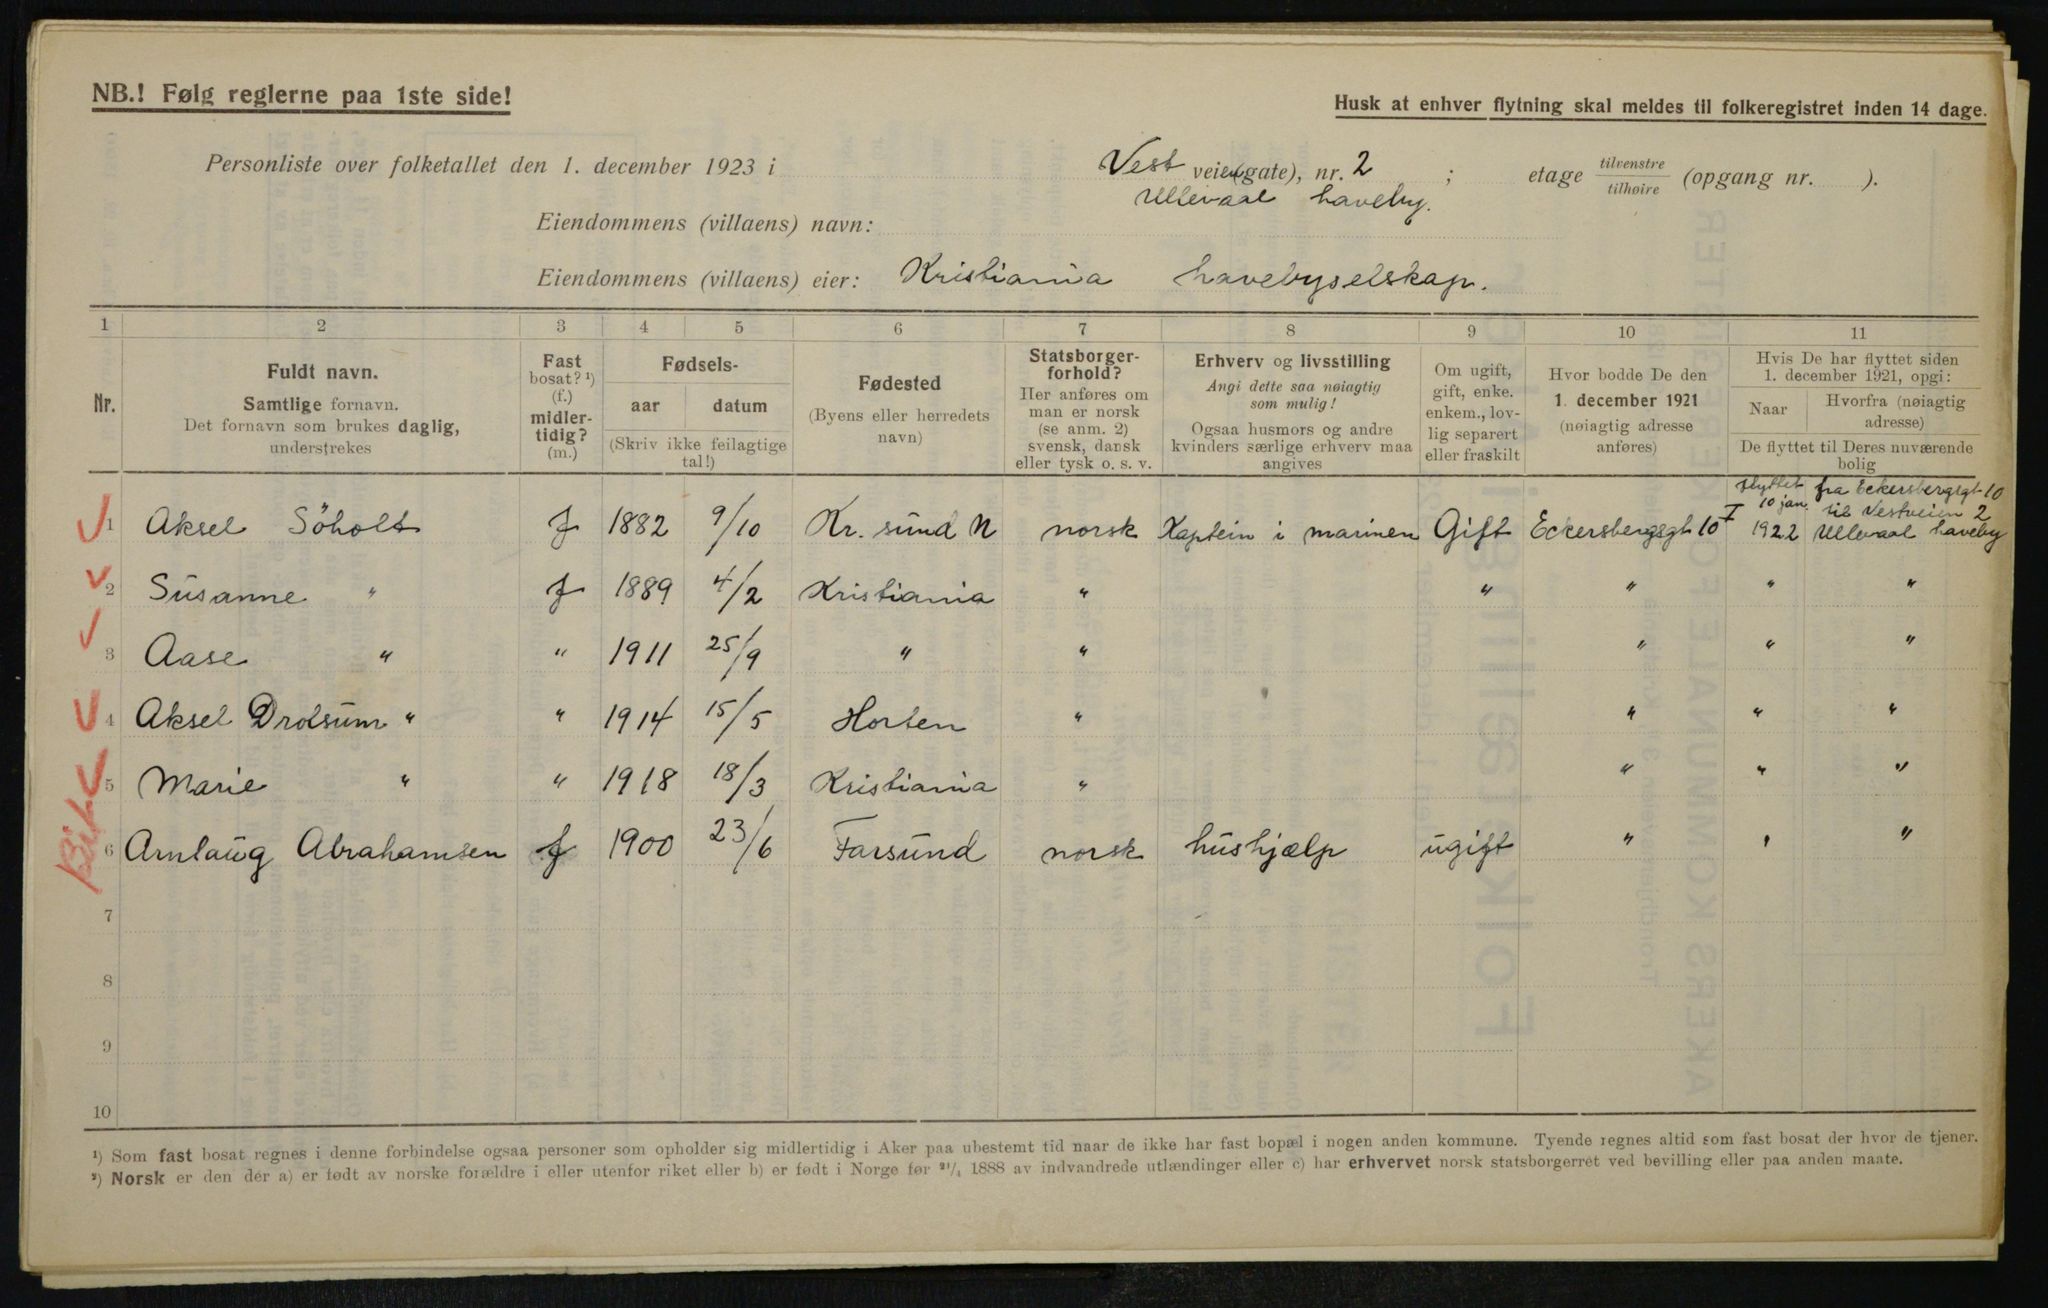 NB.! Følg reglerne paa 1ste side!
Husk at enhver flytning skal meldes til folkeregistret inden 14 dage.
Personliste over folketallet den 1. december 1923 i Vest veien (gate), nr. 2 ; etage tilvenstre / tilhøire (opgang nr. ).
Ullevaal haveby.
Eiendommens (villaens) navn:
Eiendommens (villaens) eier: Kristiania havebyselskap.
1 2 3 4 5 6 7 8 9 10 11
Nr.
Fuldt navn.
Samtlige fornavn.
Det fornavn som brukes daglig,
understrekes
Fast
bosat? ¹)
(f.)
midler-
tidig?
(m.)
Fødsels-
aar datum
(Skriv ikke feilagtige
tal!)
Fødested
(Byens eller herredets
navn)
Statsborger-
forhold?
Her anføres om
man er norsk
(se anm. 2)
svensk, dansk
eller tysk o. s. v.
Erhverv og livsstilling
Angi dette saa nøiagtig
som mulig!
Ogsaa husmors og andre
kvinders særlige erhverv maa
angives
Om ugift,
gift, enke.
enkem., lov-
lig separert
eller fraskilt
Hvor bodde De den
1. december 1921
(nøiagtig adresse
anføres)
Hvis De har flyttet siden
1. december 1921, opgi:
Naar
Hvorfra (nøiagtig
adresse)
De flyttet til Deres nuværende
bolig
flyttet fra Eckersbergsgt 10
10 jan. til Vestveien 2
1 Aksel Söholt f 1882 9/10 Kr. sund N norsk Kaptein i marinen Gift Eckersbergsgt 10 I 1922 Ullevaal haveby
2 Susanne " f 1889 4/2 Kristiania " " " " "
3 Aase " " 1911 25/9 " " " " "
4 Aksel Drolsum " " 1914 15/5 Horten " " " "
5 Marie " " 1918 18/3 Kristiania " " " "
6 Arnlaug Abrahamsen f 1900 23/6 Farsund norsk hushjælp ugift " " "
7
8
9
10
¹) Som fast bosat regnes i denne forbindelse ogsaa personer som opholder sig midlertidig i Aker paa ubestemt tid naar de ikke har fast bopæl i nogen anden kommune. Tyende regnes altid som fast bosat der hvor de tjener.
²) Norsk er den der a) er født av norske forældre i eller utenfor riket eller b) er født i Norge før ²¹/₄ 1888 av indvandrede utlændinger eller c) har erhvervet norsk statsborgerret ved bevilling eller paa anden maate.